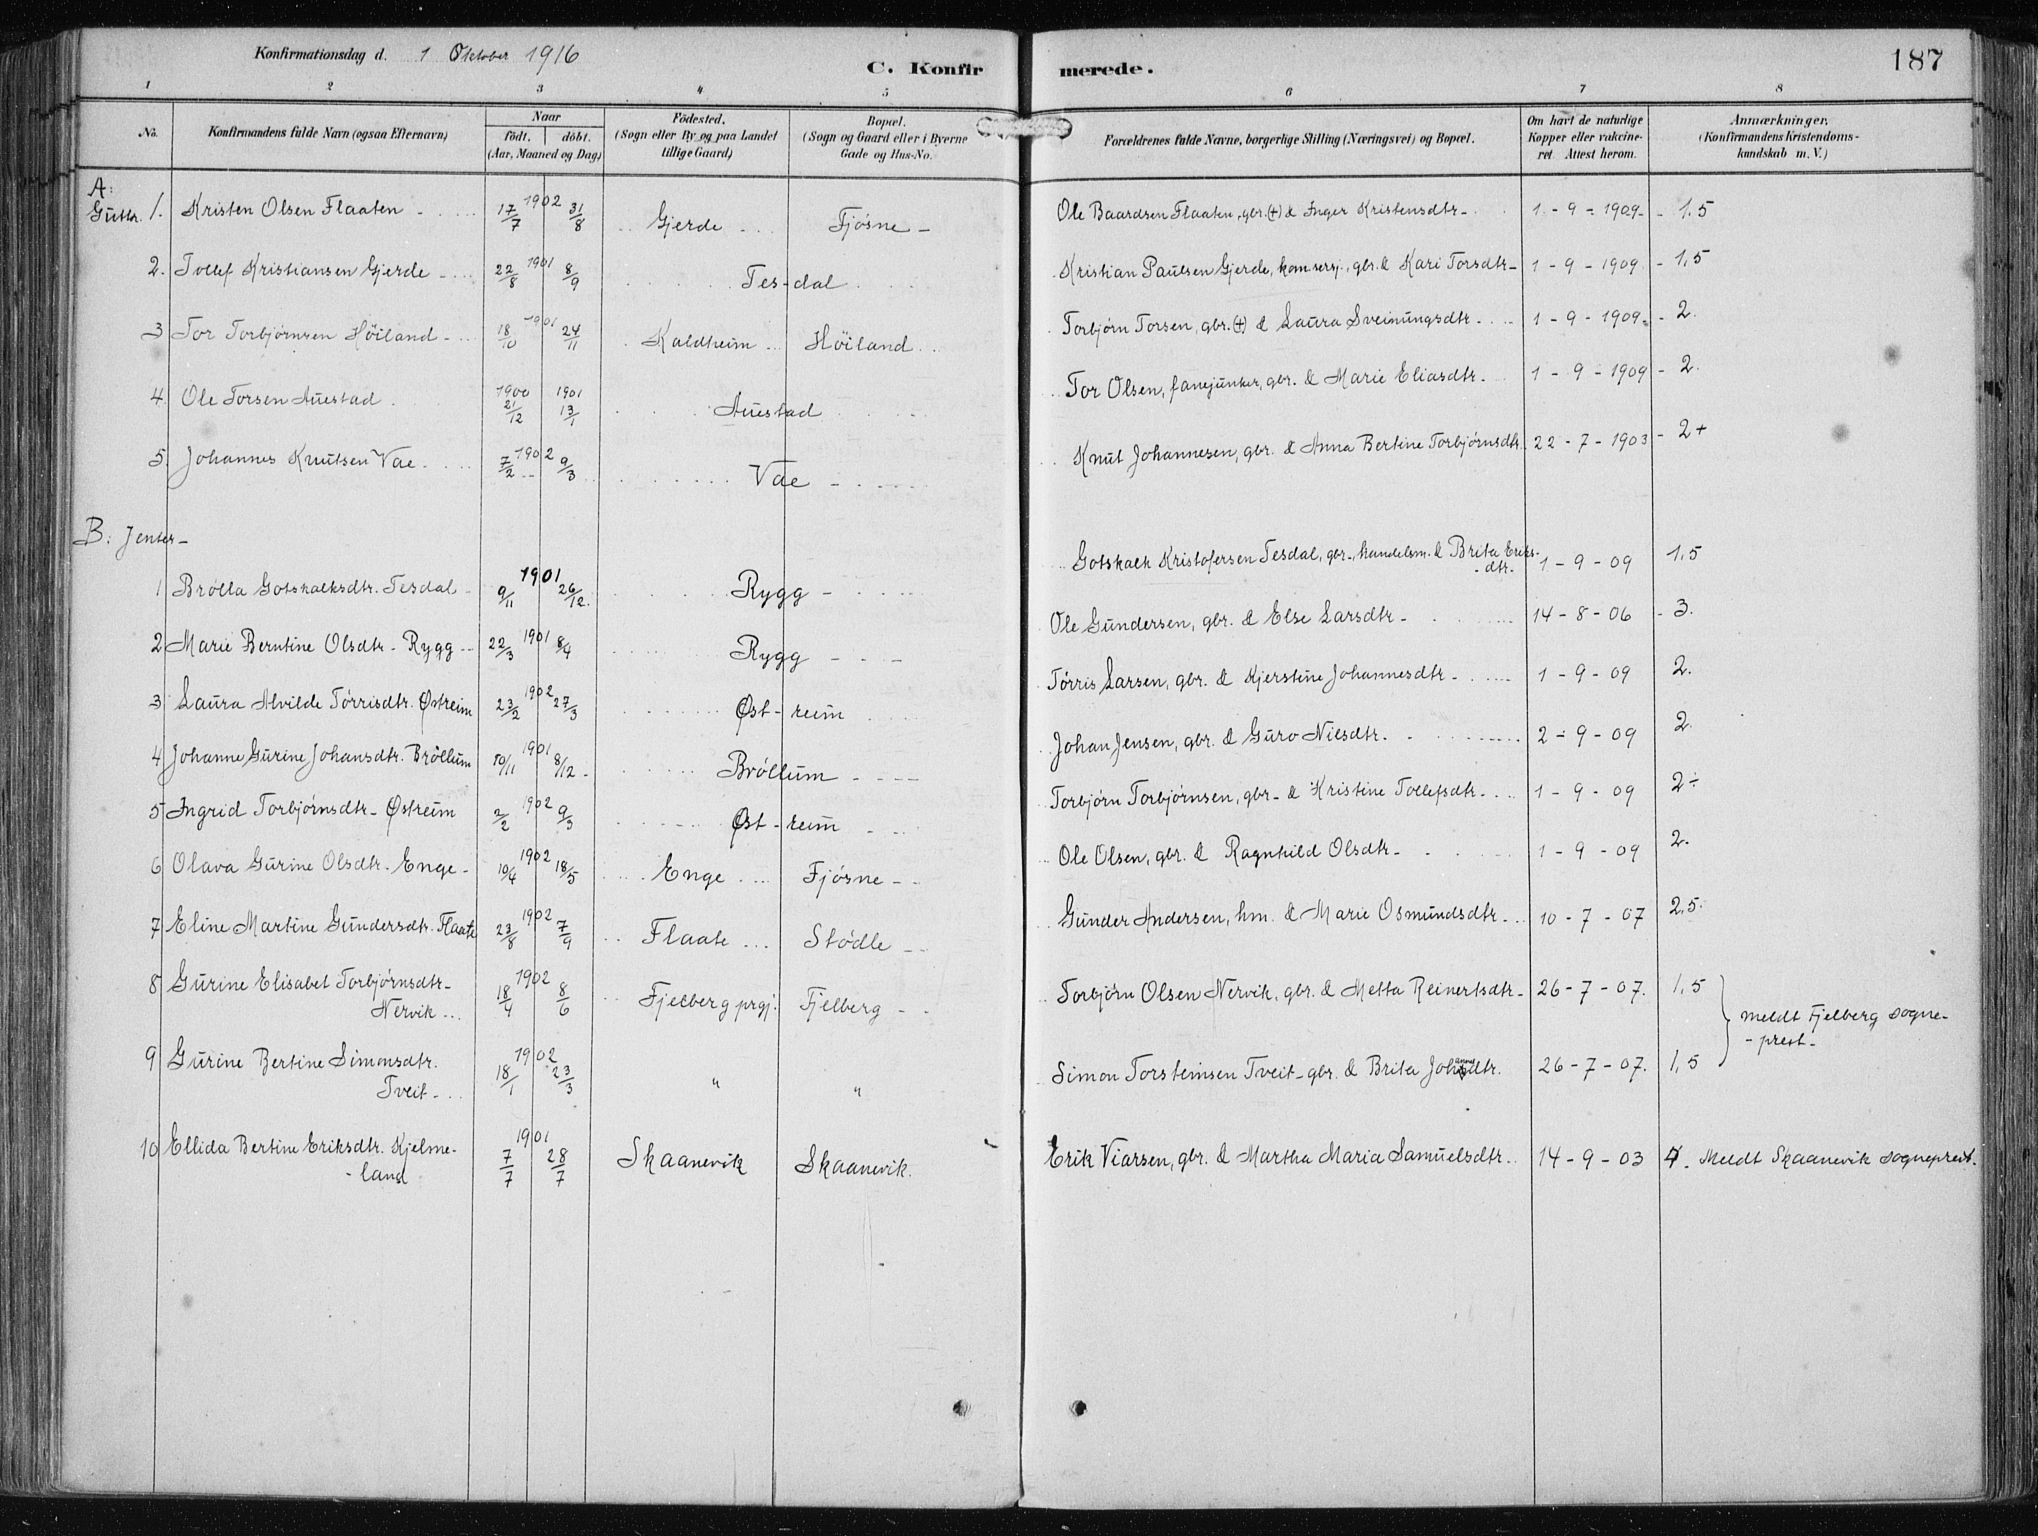 Konfirmationsdag d. 1 Oktober 1916
C. Konfir merede. 187
1 2 3 4 5 6 7 8
No. Konfirmandens fulde Navn (ogsaa Efternavn) Naar födt. döbt. (Aar, Maaned og Dag) Födested. (Sogn eller By og paa Landet tillige Gaard) Bopæl. (Sogn og Gaard eller i Byerne Gade og Hus-No. Forældrenes fulde Navne, borgerlige Stilling (Næringsvei) og Bopæl. Om havt de naturlige Kopper eller vakcineret. Attest herom. Anmærkninger. (Konfirmandens Kristendomskundskab m. V.)
A:
Gutter. 1. Kristen Olsen Flaaten 17/7 1902 31/8 Gjerde Fjösne Ole Baardsen Flaaten, gbr. (+) & Inger Kristensdtr 1 - 9 - 1909 1,5
2. Tollef Kristiansen Gjerde 22/8 1901 8/9 Tes-dal Kristian Paulsen Gjerde, kom.sersj., gbr. & Kari Torsdtr 1 - 9 - 1909 1,5
3 Tor Torbjörnsen Höiland 18/10 1901 24/11 Kaldheim Höiland Torbjörn Torsen, gbr. (+) & Laura Sveinungsdtr 1 - 9 - 1909 2.
4. Ole Torsen Auestad 1900 21/12 1901 13/1 Auestad Tor Olsen, fanejunker, gbr. & Marie Eliasdtr. 1 - 9 - 1909 2.
5. Johannes Knutsen Vae 7/2 1902 9/3 Vae Knut Johannesen, gbr. & Anna Bertine Torbjörnsdtr. 22 - 7 - 1903 2+
B: Jenter
1 Brölla Gotskalksdtr. Tesdal 9/11 1901 26/12. Rygg Gotskalk Kristofersen Tesdal, gbr., handelsm. & Brita Eriks-dtr. 1 - 9 - 09 1,5
2 Marie Berntine Olsdtr. Rygg 22/3 1901 8/4 Rygg Ole Gundersen, gbr. & Else Larsdtr 14 - 8 - 06 3.
3 Laura Alvilde Törrisdtr. Østreim 23/2 1902 27/3 Øst-reim Törris Larsen, gbr. & Kjerstine Johannesdtr 1 - 9 - 09 2.
4 Johanne Gurine Johansdtr. Bröllum 10/11 1901 8/12 Bröllum Johan Jensen, gbr. & Guro Nilsdtr. 2 - 9 - 09 2.
5 Ingrid Torbjörnsdtr. Østreim 2/2 1902 9/3 Øst-reim Torbjörn Torbjörnsen, gbr. & Kristine Tollefsdtr 1 - 9 - 09 2÷
6 Olava Gurine Olsdtr. Enge 10/4 1902 18/5 Enge Fjösne Ole Olsen, gbr. & Ragnhild Olsdtr 1 - 9 - 09 2.
7 Eline Martine Gundersdtr. Flaate 23/8 1902 7/9 Flaate Stödle Gunder Andersen, hm. & Marie Osmundsdtr 10 - 7 - 07 2,5.
8 Gurine Elisabet Torbjörnsdtr
Nervik 18/4 1902 8/6 Fjelberg prgj. Fjelberg Torbjörn Olsen Nervik, gbr. & Metta Reinertsdtr 26 - 7 - 07. 1,5
meldt Fjelberg sogne-
prest
9 Gurine Bertine Simonsdtr.
Tveit 18/1 1902 23/3 " " Simon Torsteinsen Tveit, gbr. & Brita Johannesdtr. 26 - 7 - 07. 1,5
10 Ellida Bertine Eriksdtr. Kjelme-
land 7/7 1901 28/7 Skaanevik Skaanevik. Erik Viarsen, gbr. & Martha Maria Samuelsdtr. 14 - 9 - 03 Meldt Skaanevik sogneprest.